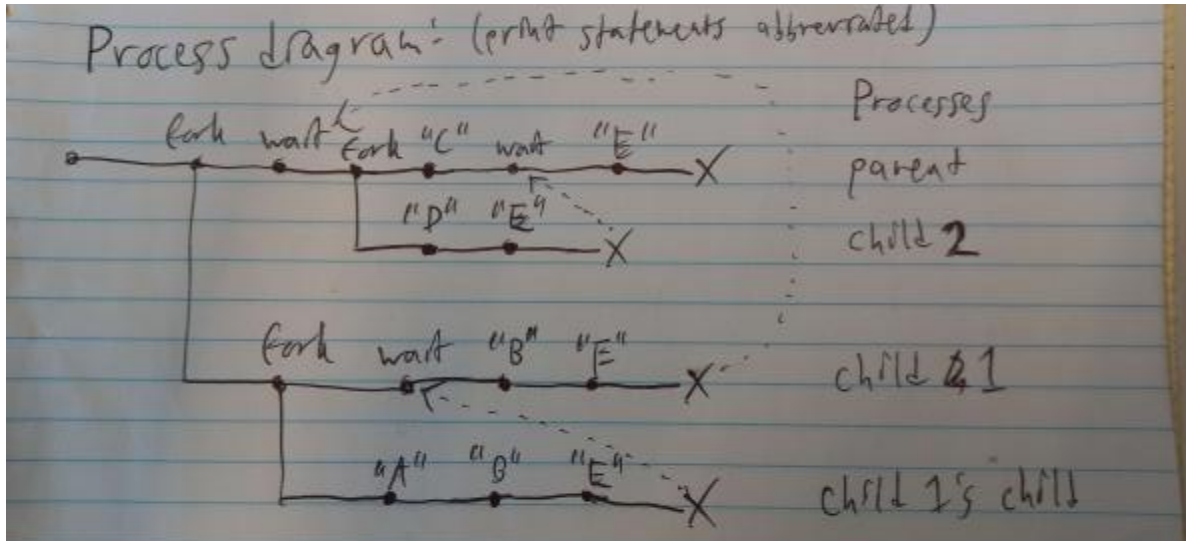 Process diagram: (print statements abbreviated)
Processes
fork wait fork "C" wait "E" parent
"D" "E" child 2
fork wait "B" "E" child 1
"A" "B" "E" child 1's child